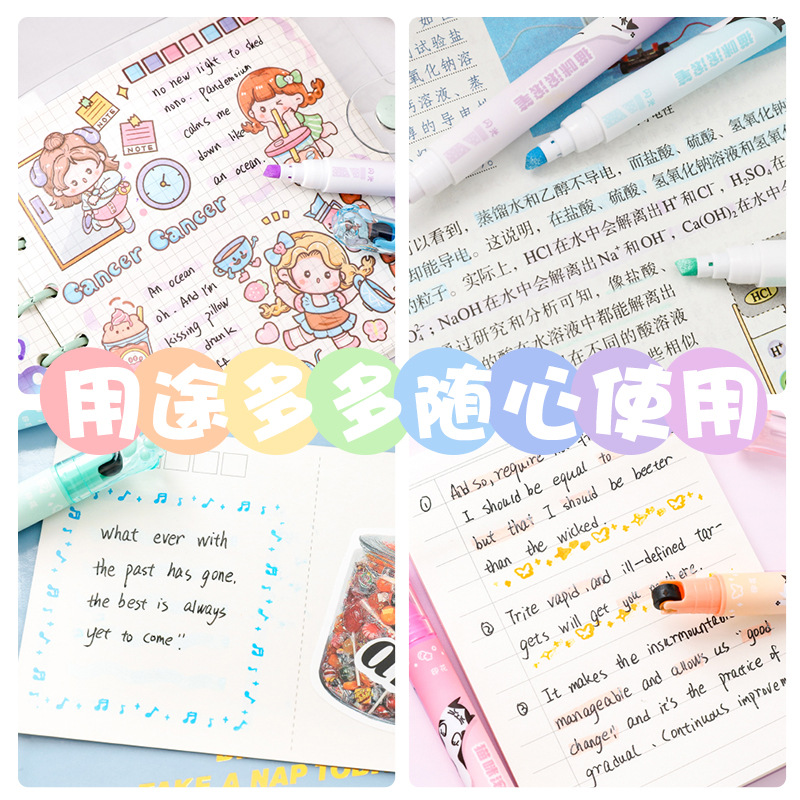 no new light to shed
nono. Pandemoium
calms me
down like
an ocean.
NOTE
NOTE
Cancer Cancer
An ocean
oh. And I'm
kissing pillow
drunk
试验盐
氧化钠溶
溶液、蒸
的导电
以看到，蒸馏水和乙醇不导电，而盐酸、硫酸、氢氧化钠
却能导电。这说明，在盐酸、硫酸、氢氧化钠溶液和氢氧化
的粒子。实际上，HCl在水中会解离出H⁺和Cl⁻，H₂SO₄在
；NaOH在水中会解离出Na⁺和OH⁻，Ca(OH)₂在水中
通过研究和分析可知，像盐酸、
的酸在水溶液中都能解离出
在不同的酸溶液
些相似
HCl
H⁺
用途多多随心使用
what ever with
the past has gone.
the best is always
yet to come".
① And so, require not
I should be equal to
but that I should be beeter
than the wicked.
② Trite vapid, and ill-defined tar-
gets will get you nowhere.
③ It makes the insurmountable
manageable and allows us "good
change". and it's the practice of
gradual. Continuous improvem
A NAP TODAY